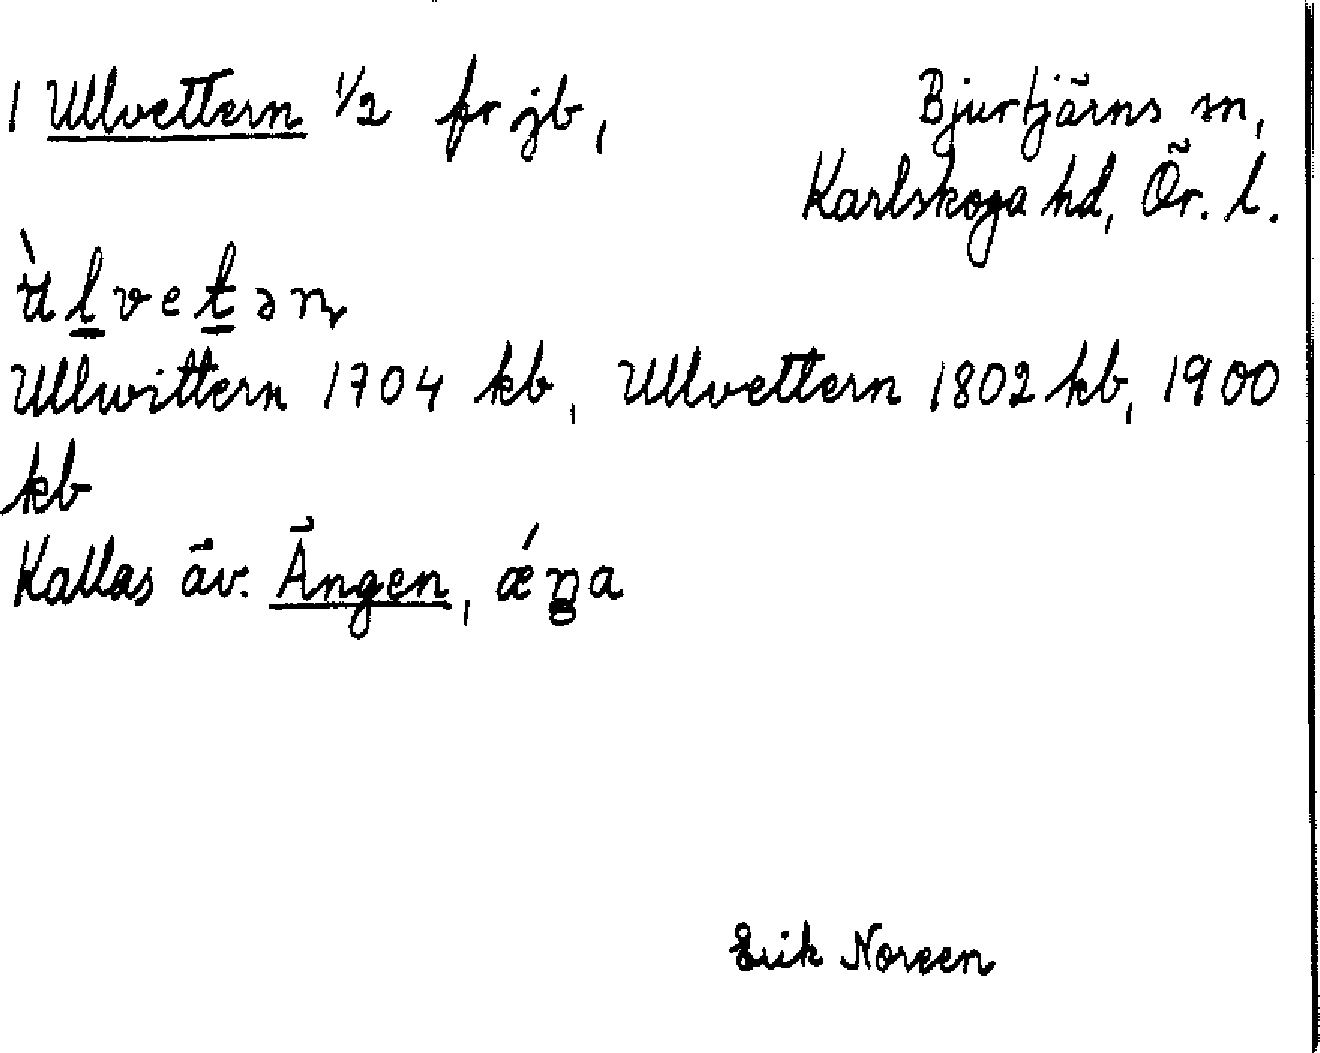 1 Ullvettern 1/2 fr jb, Bjurtjärns sn,
Karlskoga hd, Ör. l.
Ullwittern 1704 kb, Ullvettern 1802 kb, 1900
kb
Kallas äv. Ängen, ǽŋa
Erik Noreen